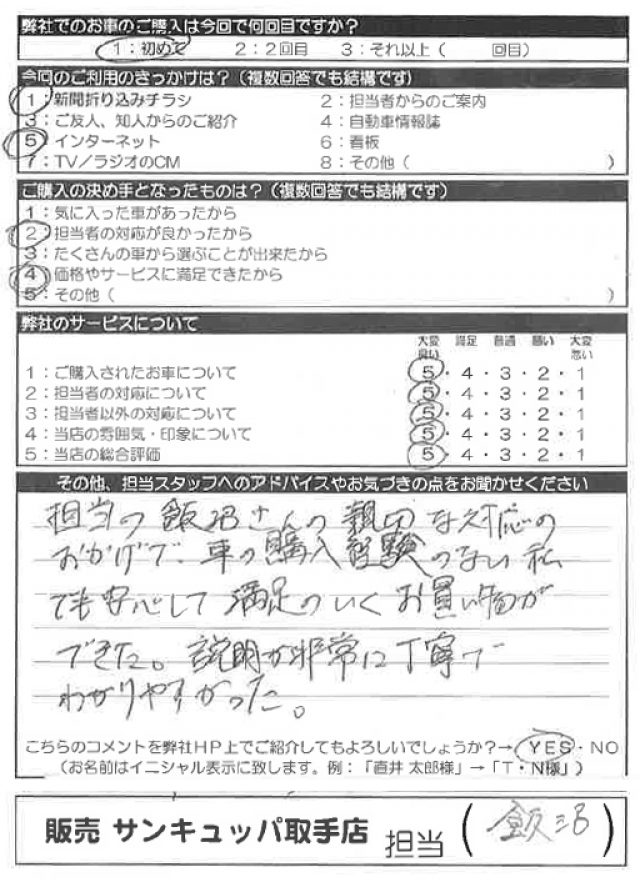 弊社でのお車のご購入は今回で何回目ですか？
1：初めて　2：2回目　3：それ以上（　　回目）
今回のご利用のきっかけは？（複数回答でも結構です）
1：新聞折り込みチラシ　2：担当者からのご案内
3：ご友人、知人からのご紹介　4：自動車情報誌
5：インターネット　6：看板
7：TV／ラジオのCM　8：その他（　　）
ご購入の決め手となったものは？（複数回答でも結構です）
1：気に入った車があったから
2：担当者の対応が良かったから
3：たくさんの車から選ぶことが出来たから
4：価格やサービスに満足できたから
5：その他（　　）
弊社のサービスについて
大変良い　満足　普通　悪い　大変悪い
1：ご購入されたお車について　5・4・3・2・1
2：担当者の対応について　5・4・3・2・1
3：担当者以外の対応について　5・4・3・2・1
4：当店の雰囲気・印象について　5・4・3・2・1
5：当店の総合評価　5・4・3・2・1
その他、担当スタッフへのアドバイスやお気づきの点をお聞かせください
担当の飯沼さんの親切な対応の
おかげで、車の購入経験のない私
でも安心して満足のいくお買い物が
できた。説明が非常に丁寧で
わかりやすかった。
こちらのコメントを弊社HP上でご紹介してもよろしいでしょうか？→YES・NO
（お名前はイニシャル表示に致します。例：「直井 太郎様」→「T・N様」）
販売 サンキュッパ取手店 担当（飯沼）